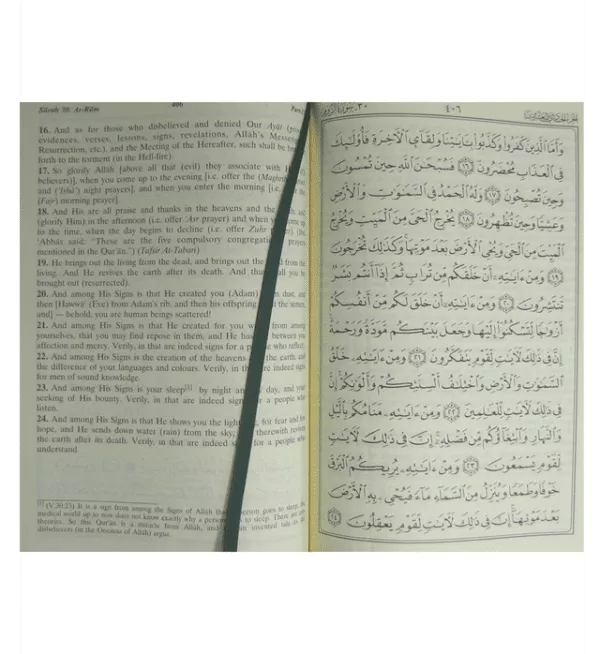 Sûrah 30. Ar-Rûm
406
Part
16. And as for those who disbelieved and denied Our Ayât
evidences, verses, lessons, signs, revelations, Allâh's
Resurrection, etc.), and the Meeting of the Hereafter, such shall be
forth to the torment (in the Hell-fire).
17. So glorify Allâh [above all that (evil) they associate with
believers)], when you come up to the evening [i.e. offer the (Maghrib)
and ('Ishâ') night prayers], and when you enter the morning [i.e.
(Fajr) morning prayer].
18. And His are all praise and thanks in the heavens and the
(glorify Him) in the afternoon (i.e. offer 'Asr prayer) and when
to the time, when the day begins to decline (i.e. offer Zuhr
'Abbâs said: "These are the five compulsory congregational prayers
mentioned in the Qur'ân.") (Tafsir At-Tabari)
19. He brings out the living from the dead, and brings out the from the
living. And He revives the earth after its death. And you be
brought out (resurrected).
20. And among His Signs is that He created you (Adam) dust, and
then [Hawwâ' (Eve) from Adam's rib, and then his offspring the semen,
and] — behold, you are human beings scattered!
21. And among His Signs is that He created for you from among
yourselves, that you may find repose in them, and He has between you
affection and mercy. Verily, in that are indeed signs for a who reflect.
22. And among His Signs is the creation of the heavens the earth, and
the difference of your languages and colours. Verily, in indeed signs
for men of sound knowledge.
23. And among His Signs is your sleep[1] by night and day, and your
seeking of His bounty. Verily, in that are indeed for a people who
listen.
24. And among His Signs is that He shows you the for fear and for
hope, and He sends down water (rain) from the sky, therewith revives
the earth after its death. Verily, in that are indeed for a people who
understand.
[1] (V.30:23) It is a sign from among the Signs of Allâh that person goes to sleep,
medical world up to now does not know exactly why a person to sleep. There are
theories. So this Qur'ân is a miracle from Allâh, and invented tale as
disbelievers (in the Oneness of Allâh) argue.
٣٠- سورة الروم
٤٠٦
وَأَمَّا ٱلَّذِينَ كَفَرُوا۟ وَكَذَّبُوا۟ بِـَٔايَـٰتِنَا وَلِقَآئِ ٱلْـَٔاخِرَةِ فَأُو۟لَـٰٓئِكَ
فِى ٱلْعَذَابِ مُحْضَرُونَ ١٦ فَسُبْحَـٰنَ ٱللَّهِ حِينَ تُمْسُونَ
وَحِينَ تُصْبِحُونَ ١٧ وَلَهُ ٱلْحَمْدُ فِى ٱلسَّمَـٰوَٰتِ وَٱلْأَرْضِ
وَعَشِيًّا وَحِينَ تُظْهِرُونَ ١٨ يُخْرِجُ ٱلْحَىَّ مِنَ ٱلْمَيِّتِ وَيُخْرِجُ
ٱلْمَيِّتَ مِنَ ٱلْحَىِّ وَيُحْىِ ٱلْأَرْضَ بَعْدَ مَوْتِهَا وَكَذَٰلِكَ تُخْرَجُونَ
١٩ وَمِنْ ءَايَـٰتِهِۦٓ أَنْ خَلَقَكُم مِّن تُرَابٍ ثُمَّ إِذَآ أَنتُم بَشَرٌ
تَنتَشِرُونَ ٢٠ وَمِنْ ءَايَـٰتِهِۦٓ أَنْ خَلَقَ لَكُم مِّنْ أَنفُسِكُمْ
أَزْوَٰجًا لِّتَسْكُنُوٓا۟ إِلَيْهَا وَجَعَلَ بَيْنَكُم مَّوَدَّةً وَرَحْمَةً
إِنَّ فِى ذَٰلِكَ لَـَٔايَـٰتٍ لِّقَوْمٍ يَتَفَكَّرُونَ ٢١ وَمِنْ ءَايَـٰتِهِۦ خَلْقُ
ٱلسَّمَـٰوَٰتِ وَٱلْأَرْضِ وَٱخْتِلَـٰفُ أَلْسِنَتِكُمْ وَأَلْوَٰنِكُمْ إِنَّ
فِى ذَٰلِكَ لَـَٔايَـٰتٍ لِّلْعَـٰلِمِينَ ٢٢ وَمِنْ ءَايَـٰتِهِۦ مَنَامُكُم بِٱلَّيْلِ
وَٱلنَّهَارِ وَٱبْتِغَآؤُكُم مِّن فَضْلِهِۦٓ إِنَّ فِى ذَٰلِكَ لَـَٔايَـٰتٍ
لِّقَوْمٍ يَسْمَعُونَ ٢٣ وَمِنْ ءَايَـٰتِهِۦ يُرِيكُمُ ٱلْبَرْقَ
خَوْفًا وَطَمَعًا وَيُنَزِّلُ مِنَ ٱلسَّمَآءِ مَآءً فَيُحْىِۦ بِهِ ٱلْأَرْضَ
بَعْدَ مَوْتِهَآ إِنَّ فِى ذَٰلِكَ لَـَٔايَـٰتٍ لِّقَوْمٍ يَعْقِلُونَ ٢٤